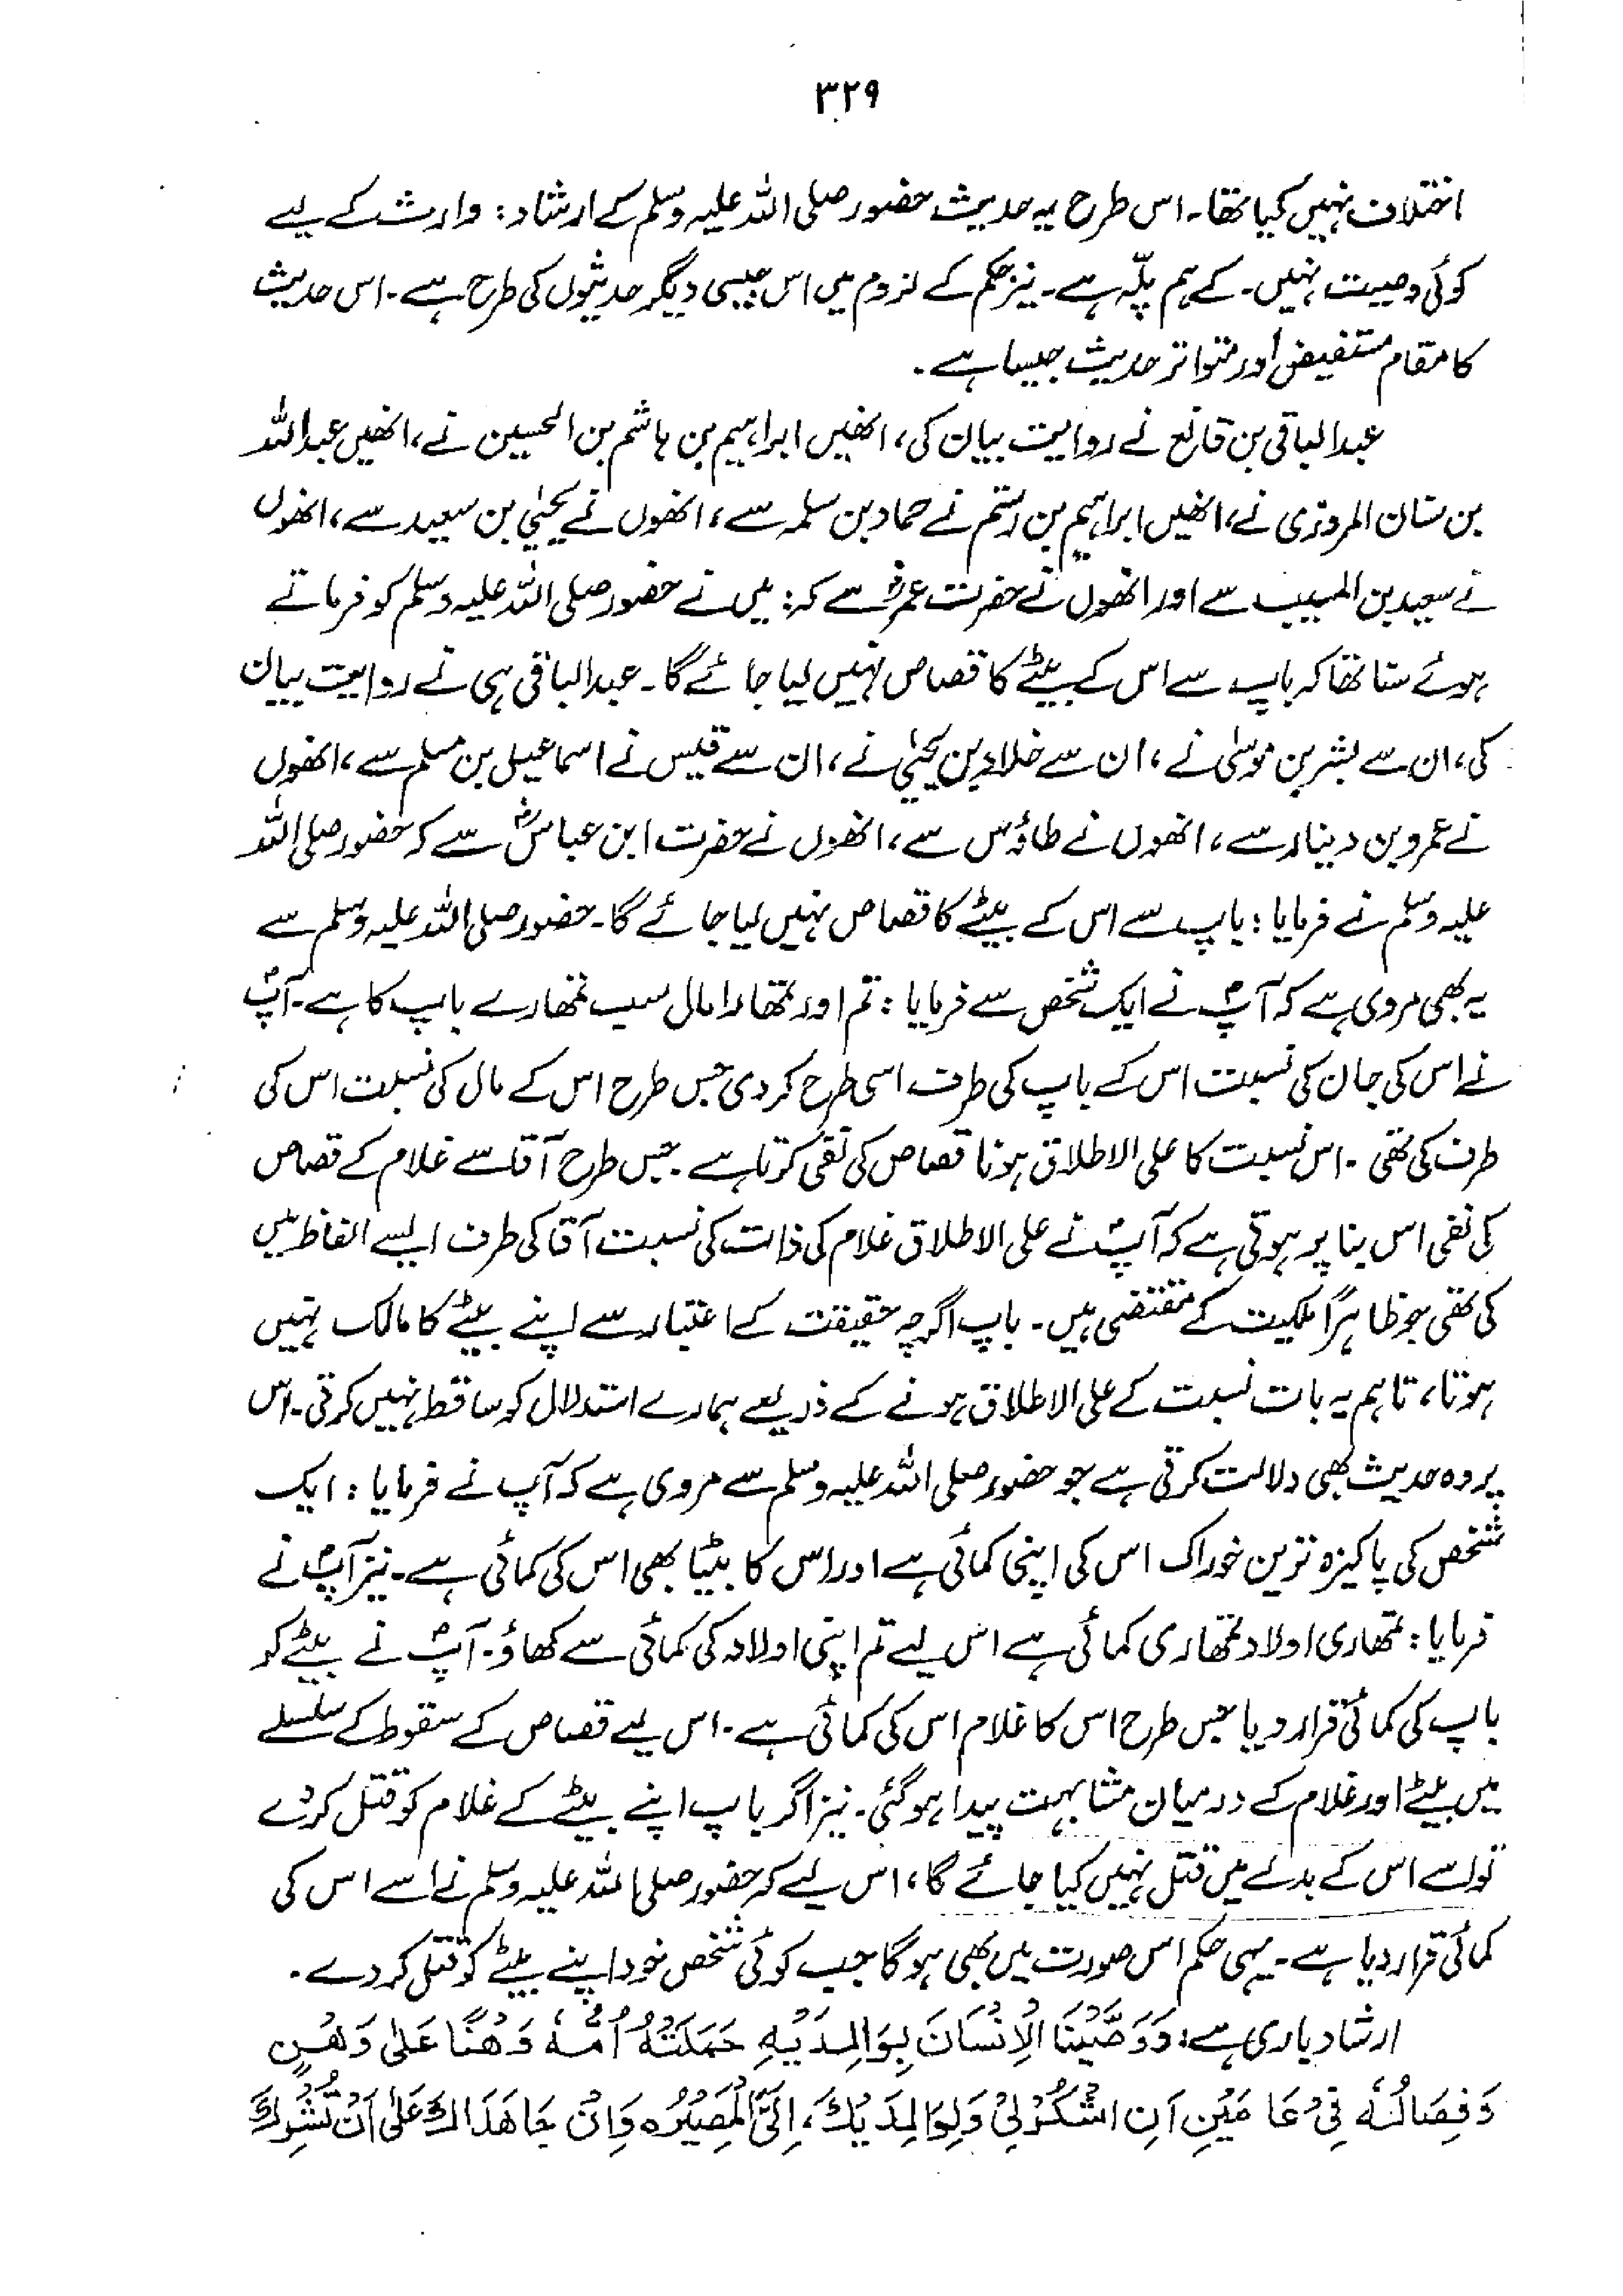 ۳۲۹
اختلاف نہیں کیا تھا۔ اس طرح یہ حدیث حضور صلی اللہ علیہ وسلم کے ارشاد: وارث کے لیے
کوئی وصیت نہیں۔ کے ہم پلّہ ہے۔ نیز حکم کے لزوم میں اس جیسی دیگر حدیثوں کی طرح ہے۔ اس حدیث
کا مقام مستفیض اور متواتر حدیث جیسا ہے۔
عبدالباقی بن قانع نے روایت بیان کی، انھیں ابراہیم بن ہاشم بن الحسین نے، انھیں عبداللہ
بن سنان المروزی نے، انھیں ابراہیم بن رستم نے حماد بن سلمہ سے، انھوں نے یحییٰ بن سعید سے، انھوں
نے سعید بن المسیب سے اور انھوں نے حضرت عمرؓ سے کہ: میں نے حضور صلی اللہ علیہ وسلم کو فرماتے
ہوئے سنا تھا کہ باپ سے اس کے بیٹے کا قصاص نہیں لیا جائے گا۔ عبدالباقی ہی نے روایت بیان
کی، ان سے بشر بن موسیٰ نے، ان سے خلاد بن یحییٰ نے، ان سے قیس نے اسماعیل بن مسلم سے، انھوں
نے عمرو بن دینار سے، انھوں نے طاؤس سے، انھوں نے حضرت ابن عباسؓ سے کہ حضور صلی اللہ
علیہ وسلم نے فرمایا: باپ سے اس کے بیٹے کا قصاص نہیں لیا جائے گا۔ حضور صلی اللہ علیہ وسلم سے
یہ بھی مروی ہے کہ آپؐ نے ایک شخص سے فرمایا: تم اور تمھارا مال سب تمھارے باپ کا ہے۔ آپؐ
نے اس کی جان کی نسبت اس کے باپ کی طرف اسی طرح کر دی جس طرح اس کے مال کی نسبت اس کی
طرف کی تھی۔ اس نسبت کا علی الاطلاق ہونا قصاص کی نفی کرتا ہے۔ جس طرح آقا سے غلام کے قصاص
کی نفی اس بنا پر ہوتی ہے کہ آپؐ نے علی الاطلاق غلام کی ذات کی نسبت آقا کی طرف ایسے الفاظ میں
کی تھی جو ظاہراً ملکیت کے مقتضی ہیں۔ باپ اگرچہ حقیقت کے اعتبار سے اپنے بیٹے کا مالک نہیں
ہوتا، تاہم یہ بات نسبت کے علی الاطلاق ہونے کے ذریعے ہمارے استدلال کو ساقط نہیں کرتی۔ اس
پر وہ حدیث بھی دلالت کرتی ہے جو حضور صلی اللہ علیہ وسلم سے مروی ہے کہ آپ نے فرمایا: ایک
شخص کی پاکیزہ ترین خوراک اس کی اپنی کمائی ہے اور اس کا بیٹا بھی اس کی کمائی ہے۔ نیز آپؐ نے
فرمایا: تمھاری اولاد تمھاری کمائی ہے اس لیے تم اپنی اولاد کی کمائی سے کھاؤ۔ آپؐ نے بیٹے کو
باپ کی کمائی قرار دیا جس طرح اس کا غلام اس کی کمائی ہے۔ اس لیے قصاص کے سقوط کے سلسلے
میں بیٹے اور غلام کے درمیان مشابہت پیدا ہو گئی۔ نیز اگر باپ اپنے بیٹے کے غلام کو قتل کر دے
تو اسے اس کے بدلے میں قتل نہیں کیا جائے گا، اس لیے کہ حضور صلی اللہ علیہ وسلم نے اسے اس کی
کمائی قرار دیا ہے۔ یہی حکم اس صورت میں بھی ہو گا جب کوئی شخص خود اپنے بیٹے کو قتل کر دے۔
ارشاد باری ہے: وَوَصَّيْنَا الْاِنْسَانَ بِوَالِدَيْهِ حَمَلَتْهُ اُمُّهٗ وَهْنًا عَلٰى وَهْنٍ
وَفِصَالُهٗ فِىْ عَامَيْنِ اَنِ اشْكُرْ لِىْ وَلِوَالِدَيْكَ، اِلَىَّ الْمَصِيْرُه وَاِنْ جَاهَدَاكَ عَلٰى اَنْ تُشْرِكَ